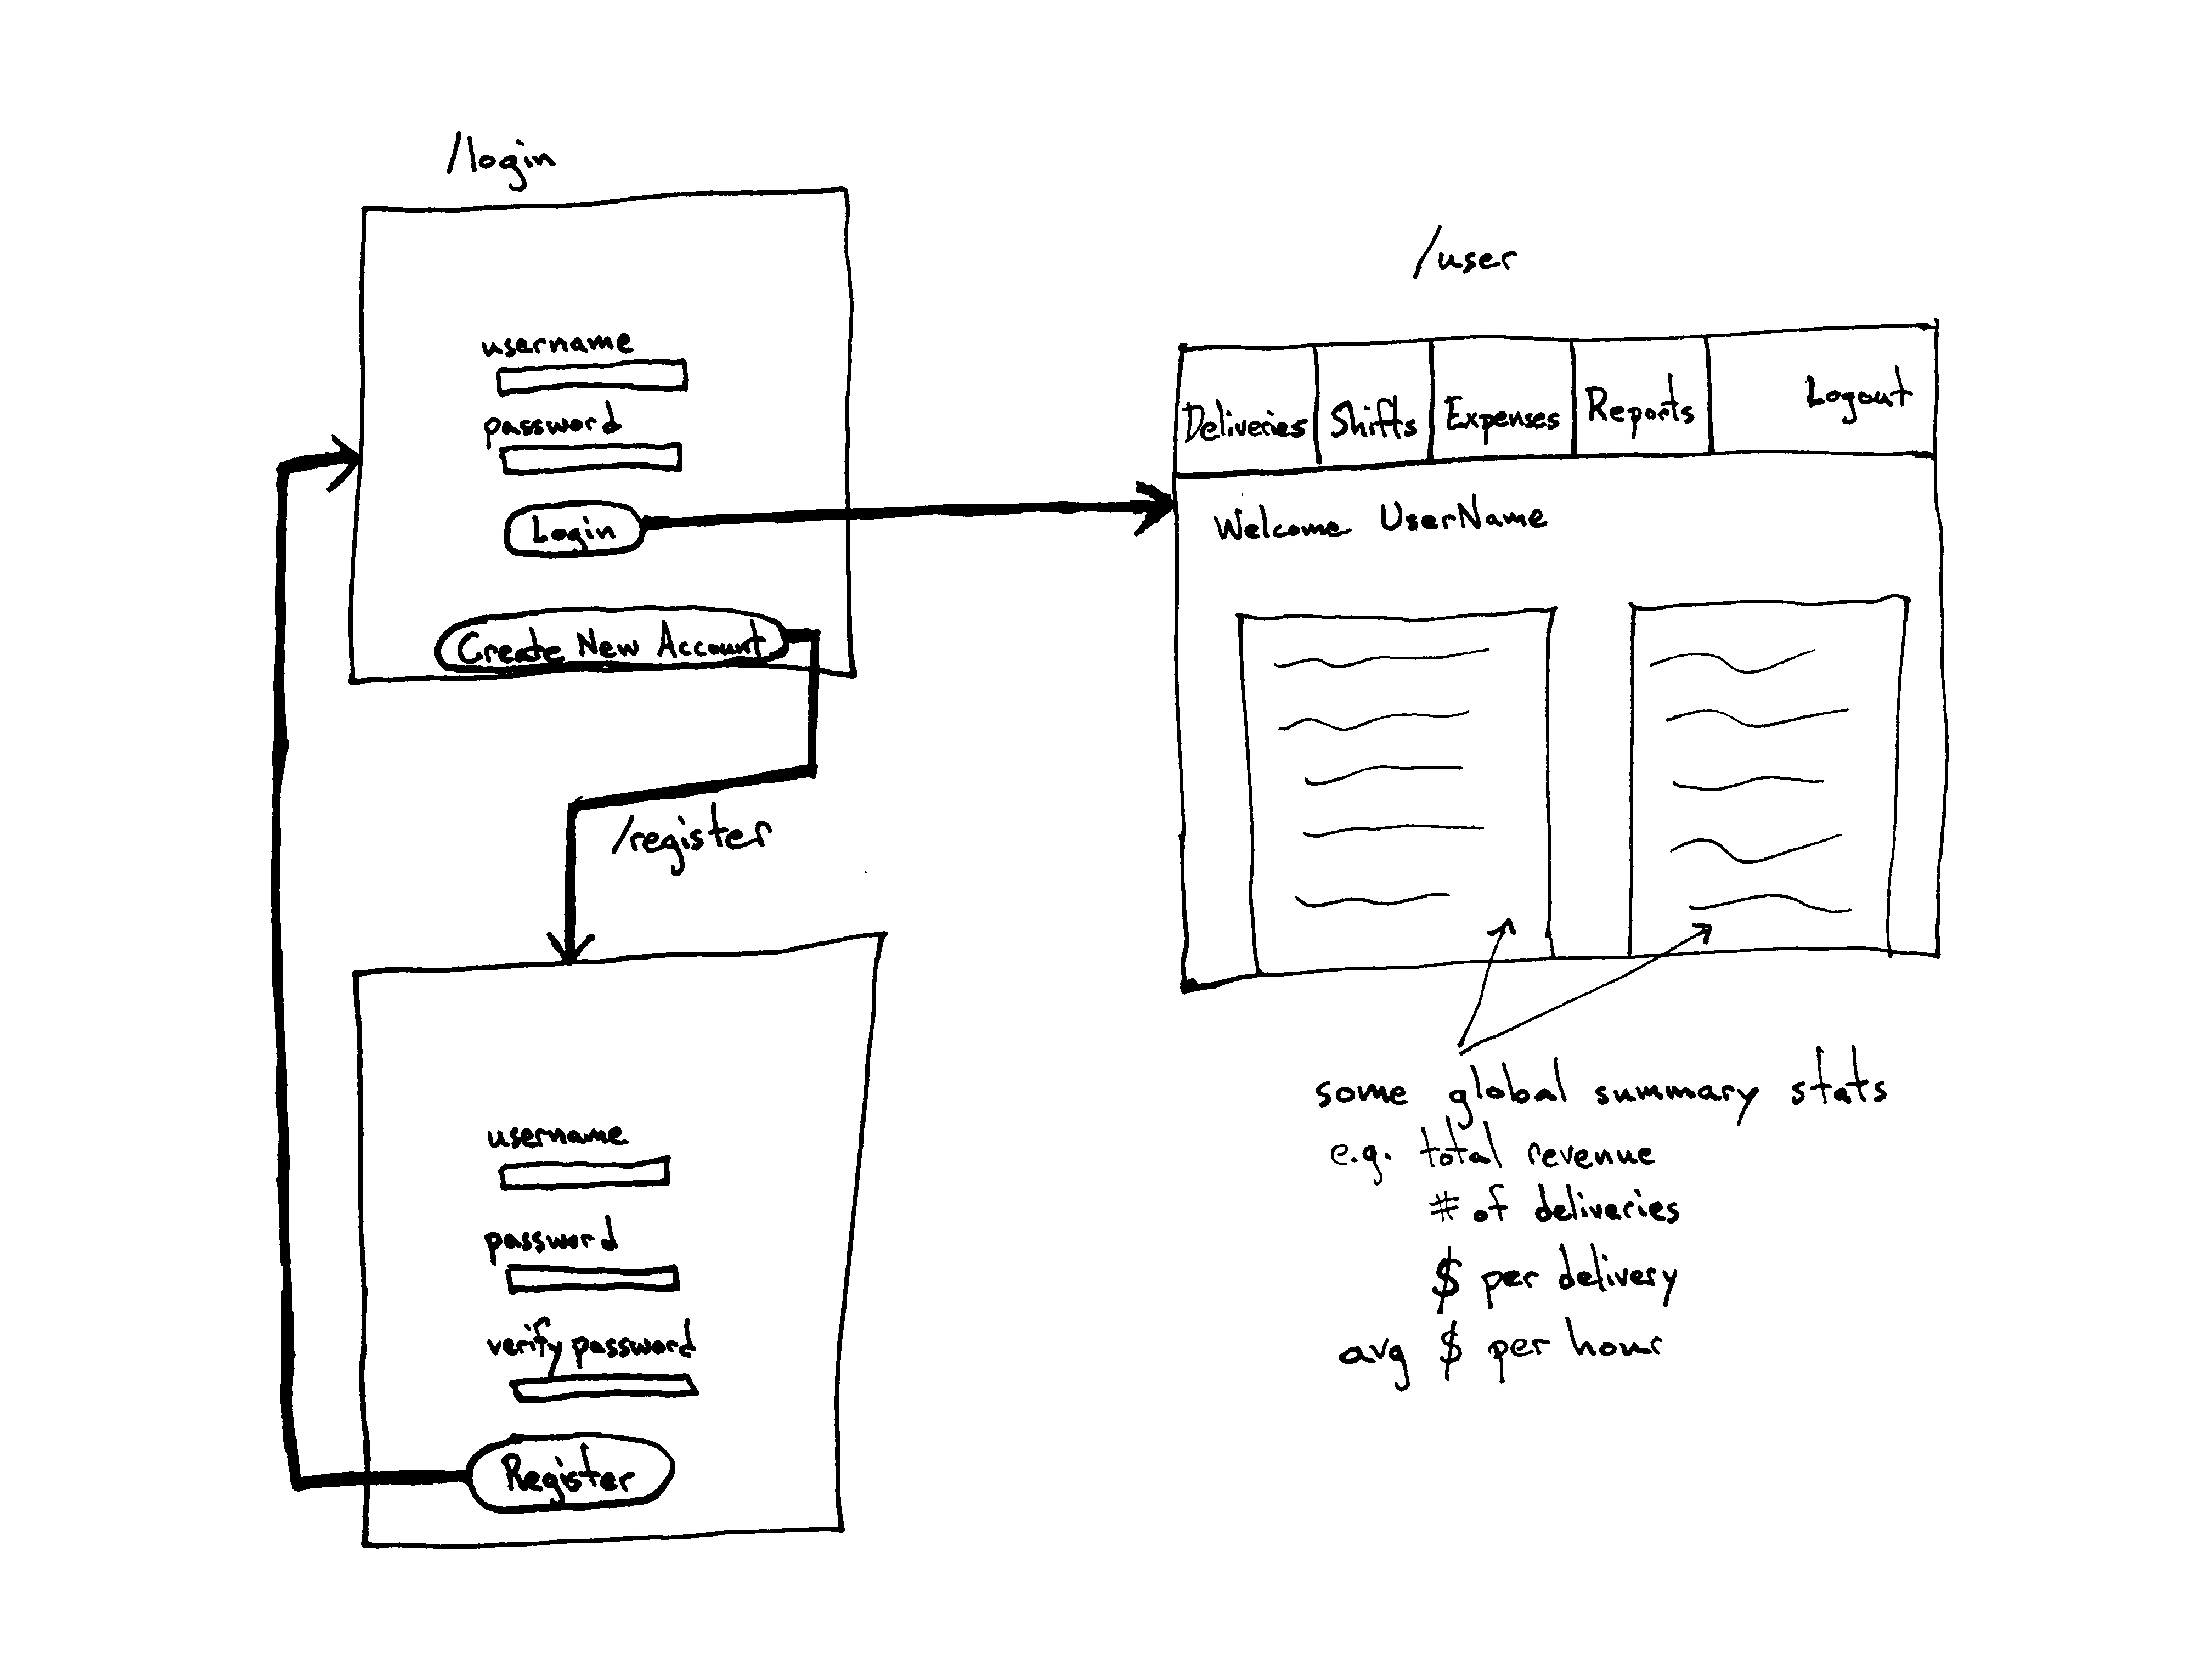 /login
username
password
Login
Create New Account
/register
username
password
verify password
Register
/user
Deliveries Shifts Expenses Reports Logout
Welcome UserName
some global summary stats
e.g. total revenue
# of deliveries
$ per delivery
avg $ per hour